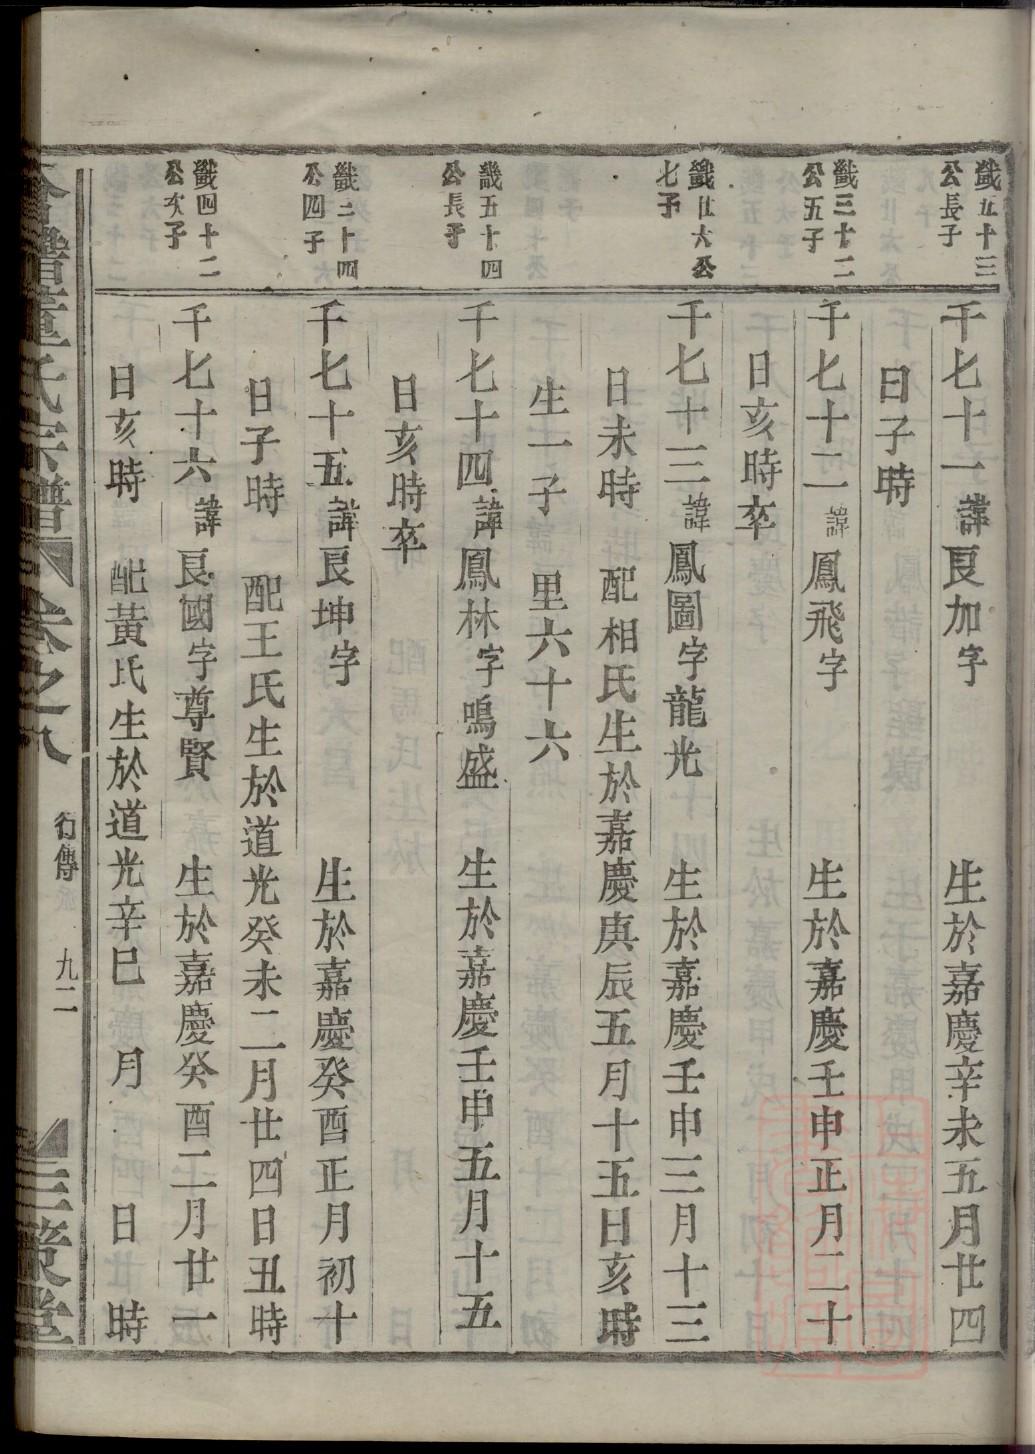 鐖五十三
公長子
千七十一諱良加字 生於嘉慶辛未五月廿四
日子時
鐖三十二
公五子
千七十二諱鳳飛字 生於嘉慶壬申正月二十
日亥時卒
鐖廿六公
七子
千七十三諱鳳圖字龍光 生於嘉慶壬申三月十三
日未時 配相氏生於嘉慶庚辰五月十五日亥時
生一子 里六十六
鐖五十四
公長子
千七十四諱鳳林字鳴盛 生於嘉慶壬申五月十五
日亥時卒
鐖三十四
公四子
千七十五諱良坤字 生於嘉慶癸酉正月初十
日子時 配王氏生於道光癸未二月廿四日丑時
鐖四十二
公次子
千七十六諱良國字尊賢 生於嘉慶癸酉二月廿一
日亥時 配黃氏生於道光辛巳 月 日 時
會稽董氏宗譜 卷之八 行傳 九二 三策堂